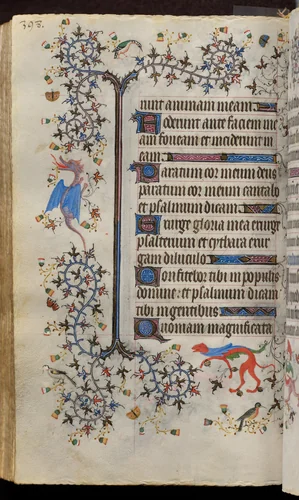 393.
runt animam meam
Foderunt ante faciem me
am foveam et inciderunt in
eam
Paratum cor meum deus
paratum cor meum cantabo
et psalmum dicam
Exurge gloria mea exurge
psalterium et cythara exur
gam diluculo
Confitebor tibi in populis
domine: et psalmum dicam
tibi in gentibus
Quoniam magnificata